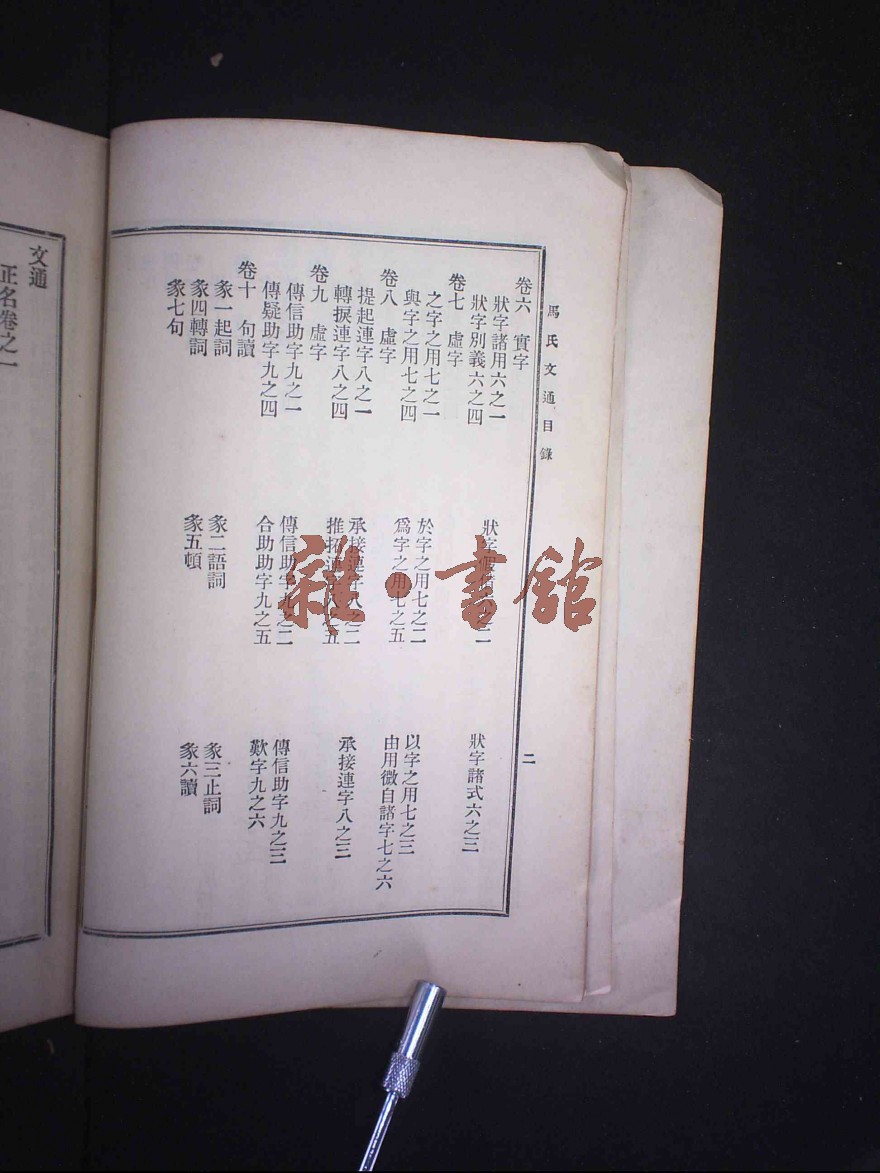 馬氏文通目錄
二
卷六　實字
狀字諸用六之一
狀字假借六之二
狀字諸式六之三
狀字別義六之四
卷七　虛字
之字之用七之一
於字之用七之二
以字之用七之三
與字之用七之四
爲字之用七之五
由用微自諸字七之六
卷八　虛字
提起連字八之一
承接連字八之二
承接連字八之三
轉捩連字八之四
推拓連字八之五
卷九　虛字
傳信助字九之一
傳信助字九之二
傳信助字九之三
傳疑助字九之四
合助助字九之五
歎字九之六
卷十　句讀
彖一起詞
彖二語詞
彖三止詞
彖四轉詞
彖五頓
彖六讀
彖七句
文通
正名卷之一
雜·書館